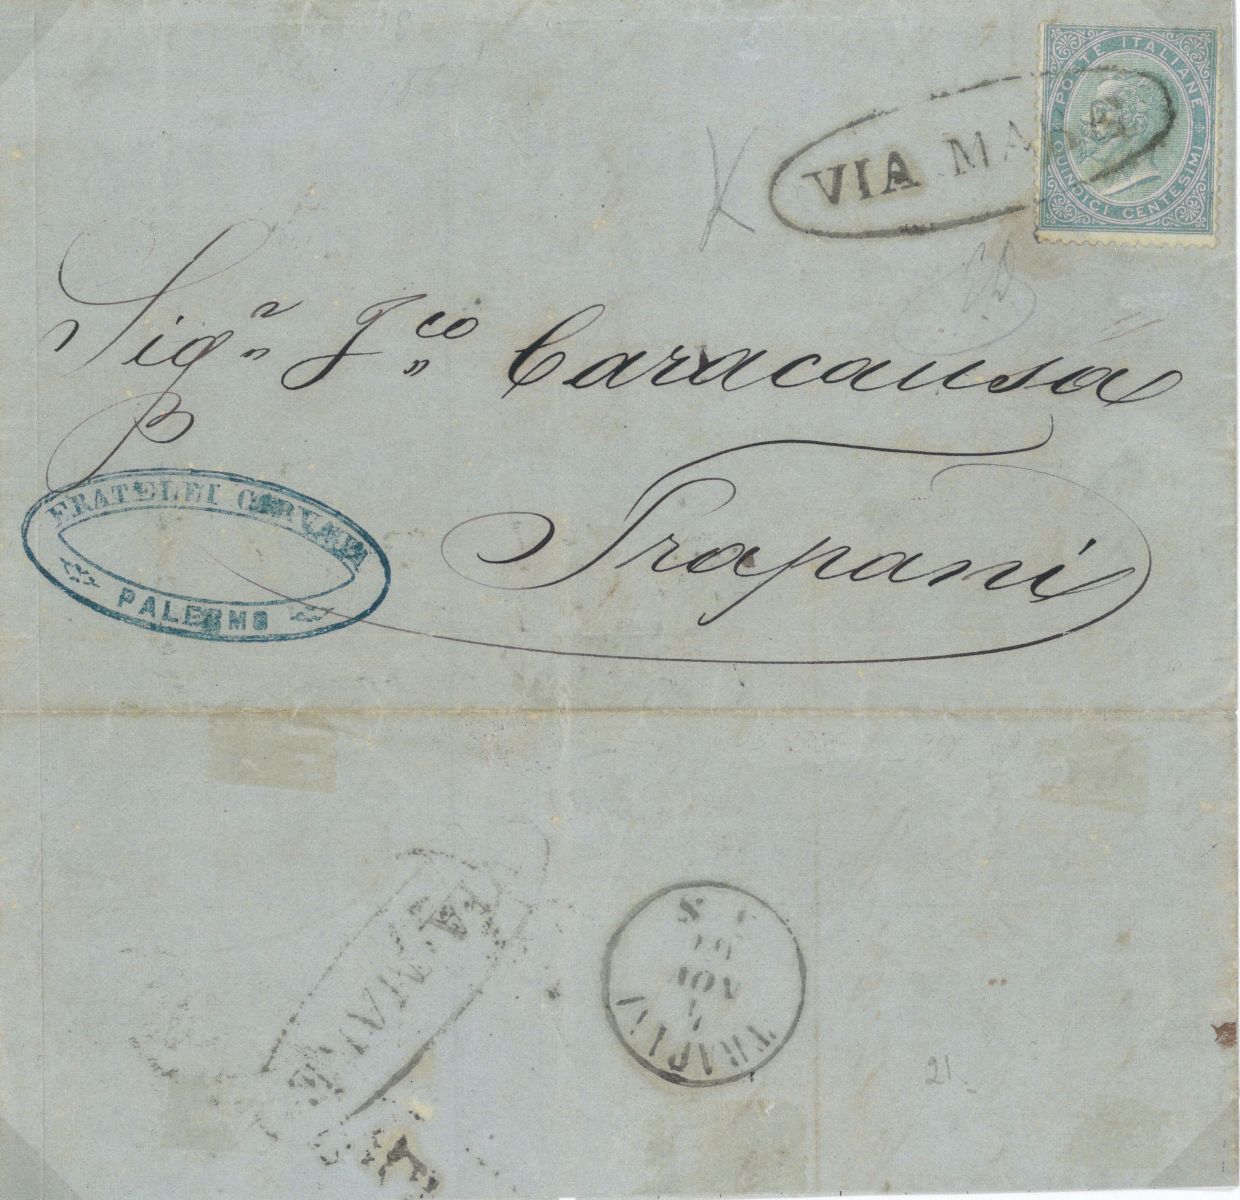 POSTE ITALIANE
QUINDICI CENTESIMI
VIA MARE
Sigr. Fco. Caracausá
Trapani
FRATELLI
PALERMO
VIA MARE
TRAPANI
NOV
21